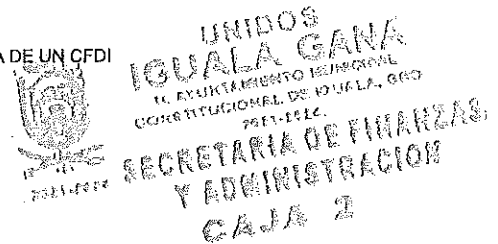 A DE UN CFDI
UNIDOS
IGUALA GANA
H. AYUNTAMIENTO MUNICIPAL
CONSTITUCIONAL DE IGUALA, GRO
2021-2024.
SECRETARIA DE FINANZAS,
Y ADMINISTRACION
CAJA 2
2021-2024